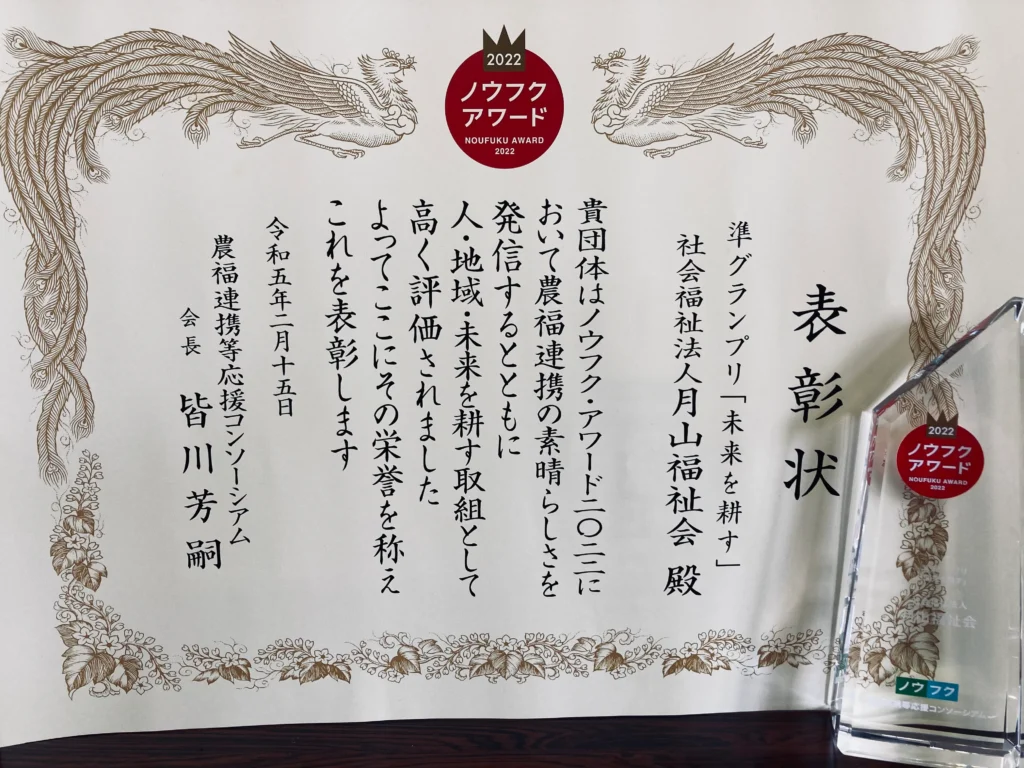 2022
ノウフク
アワード
NOUFUKU AWARD
2022
表彰状
準グランプリ「未来を耕す」
社会福祉法人月山福祉会 殿
貴団体はノウフク・アワード二〇二二に
おいて農福連携の素晴らしさを
発信するとともに
人・地域・未来を耕す取組として
高く評価されました
よってここにその栄誉を称え
これを表彰します
令和五年二月十五日
農福連携等応援コンソーシアム
会長 皆川芳嗣
2022
ノウフク
アワード
NOUFUKU AWARD
2022
ノウフク
等応援コンソーシアム